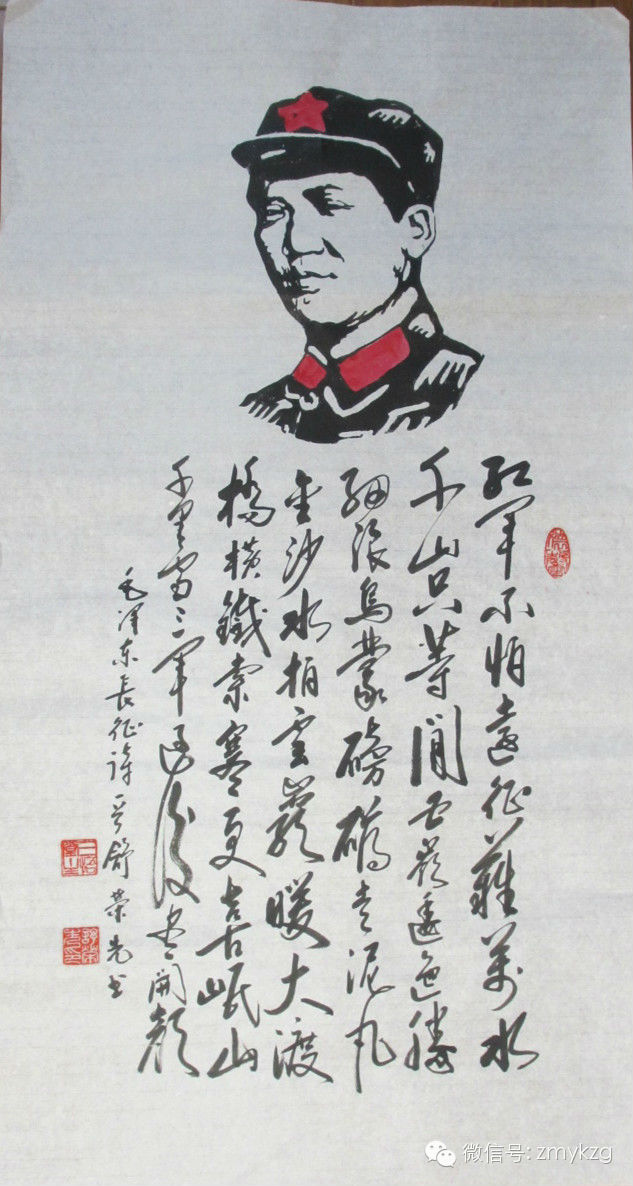 红军不怕遠征難萬水
千山只等閒五嶺逶迤騰
細浪烏蒙磅礴走泥丸
金沙水拍雲巖暖大渡
橋橫鐵索寒更喜岷山
千里雪三军過後盡開顏
毛泽东長征詩 舒榮先书
微信号: zmykzg